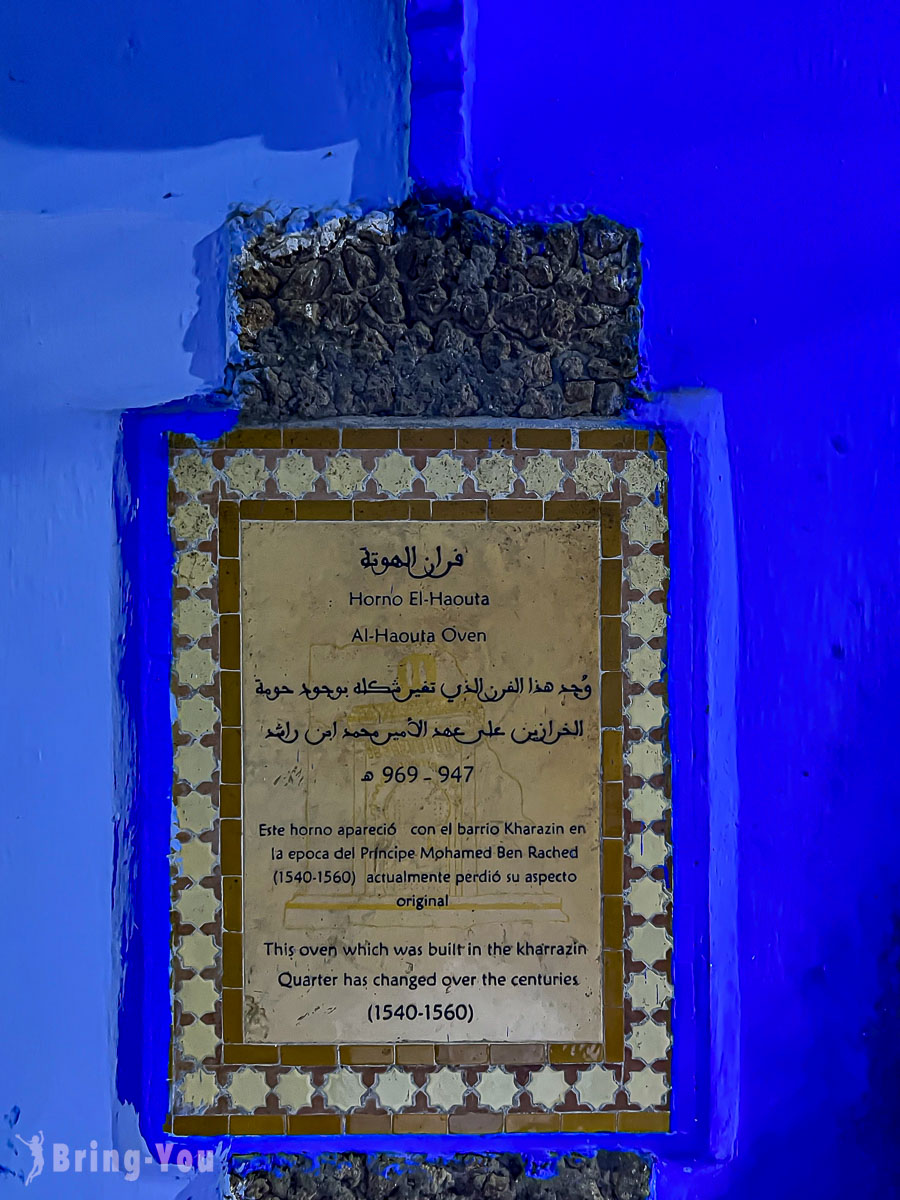 فران الهوتة
Horno El-Haouta
Al-Haouta Oven
وُجد هذا الفرن الذي تغير شكله بوجود حومة
الخرازين على عهد الأمير محمد ابن راشد
947 - 969 هـ
Este horno apareció con el barrio Kharazin en
la epoca del Príncipe Mohamed Ben Rached
(1540-1560) actualmente perdió su aspecto
original
This oven which was built in the kharrazin
Quarter has changed over the centuries
(1540-1560)
Bring-You